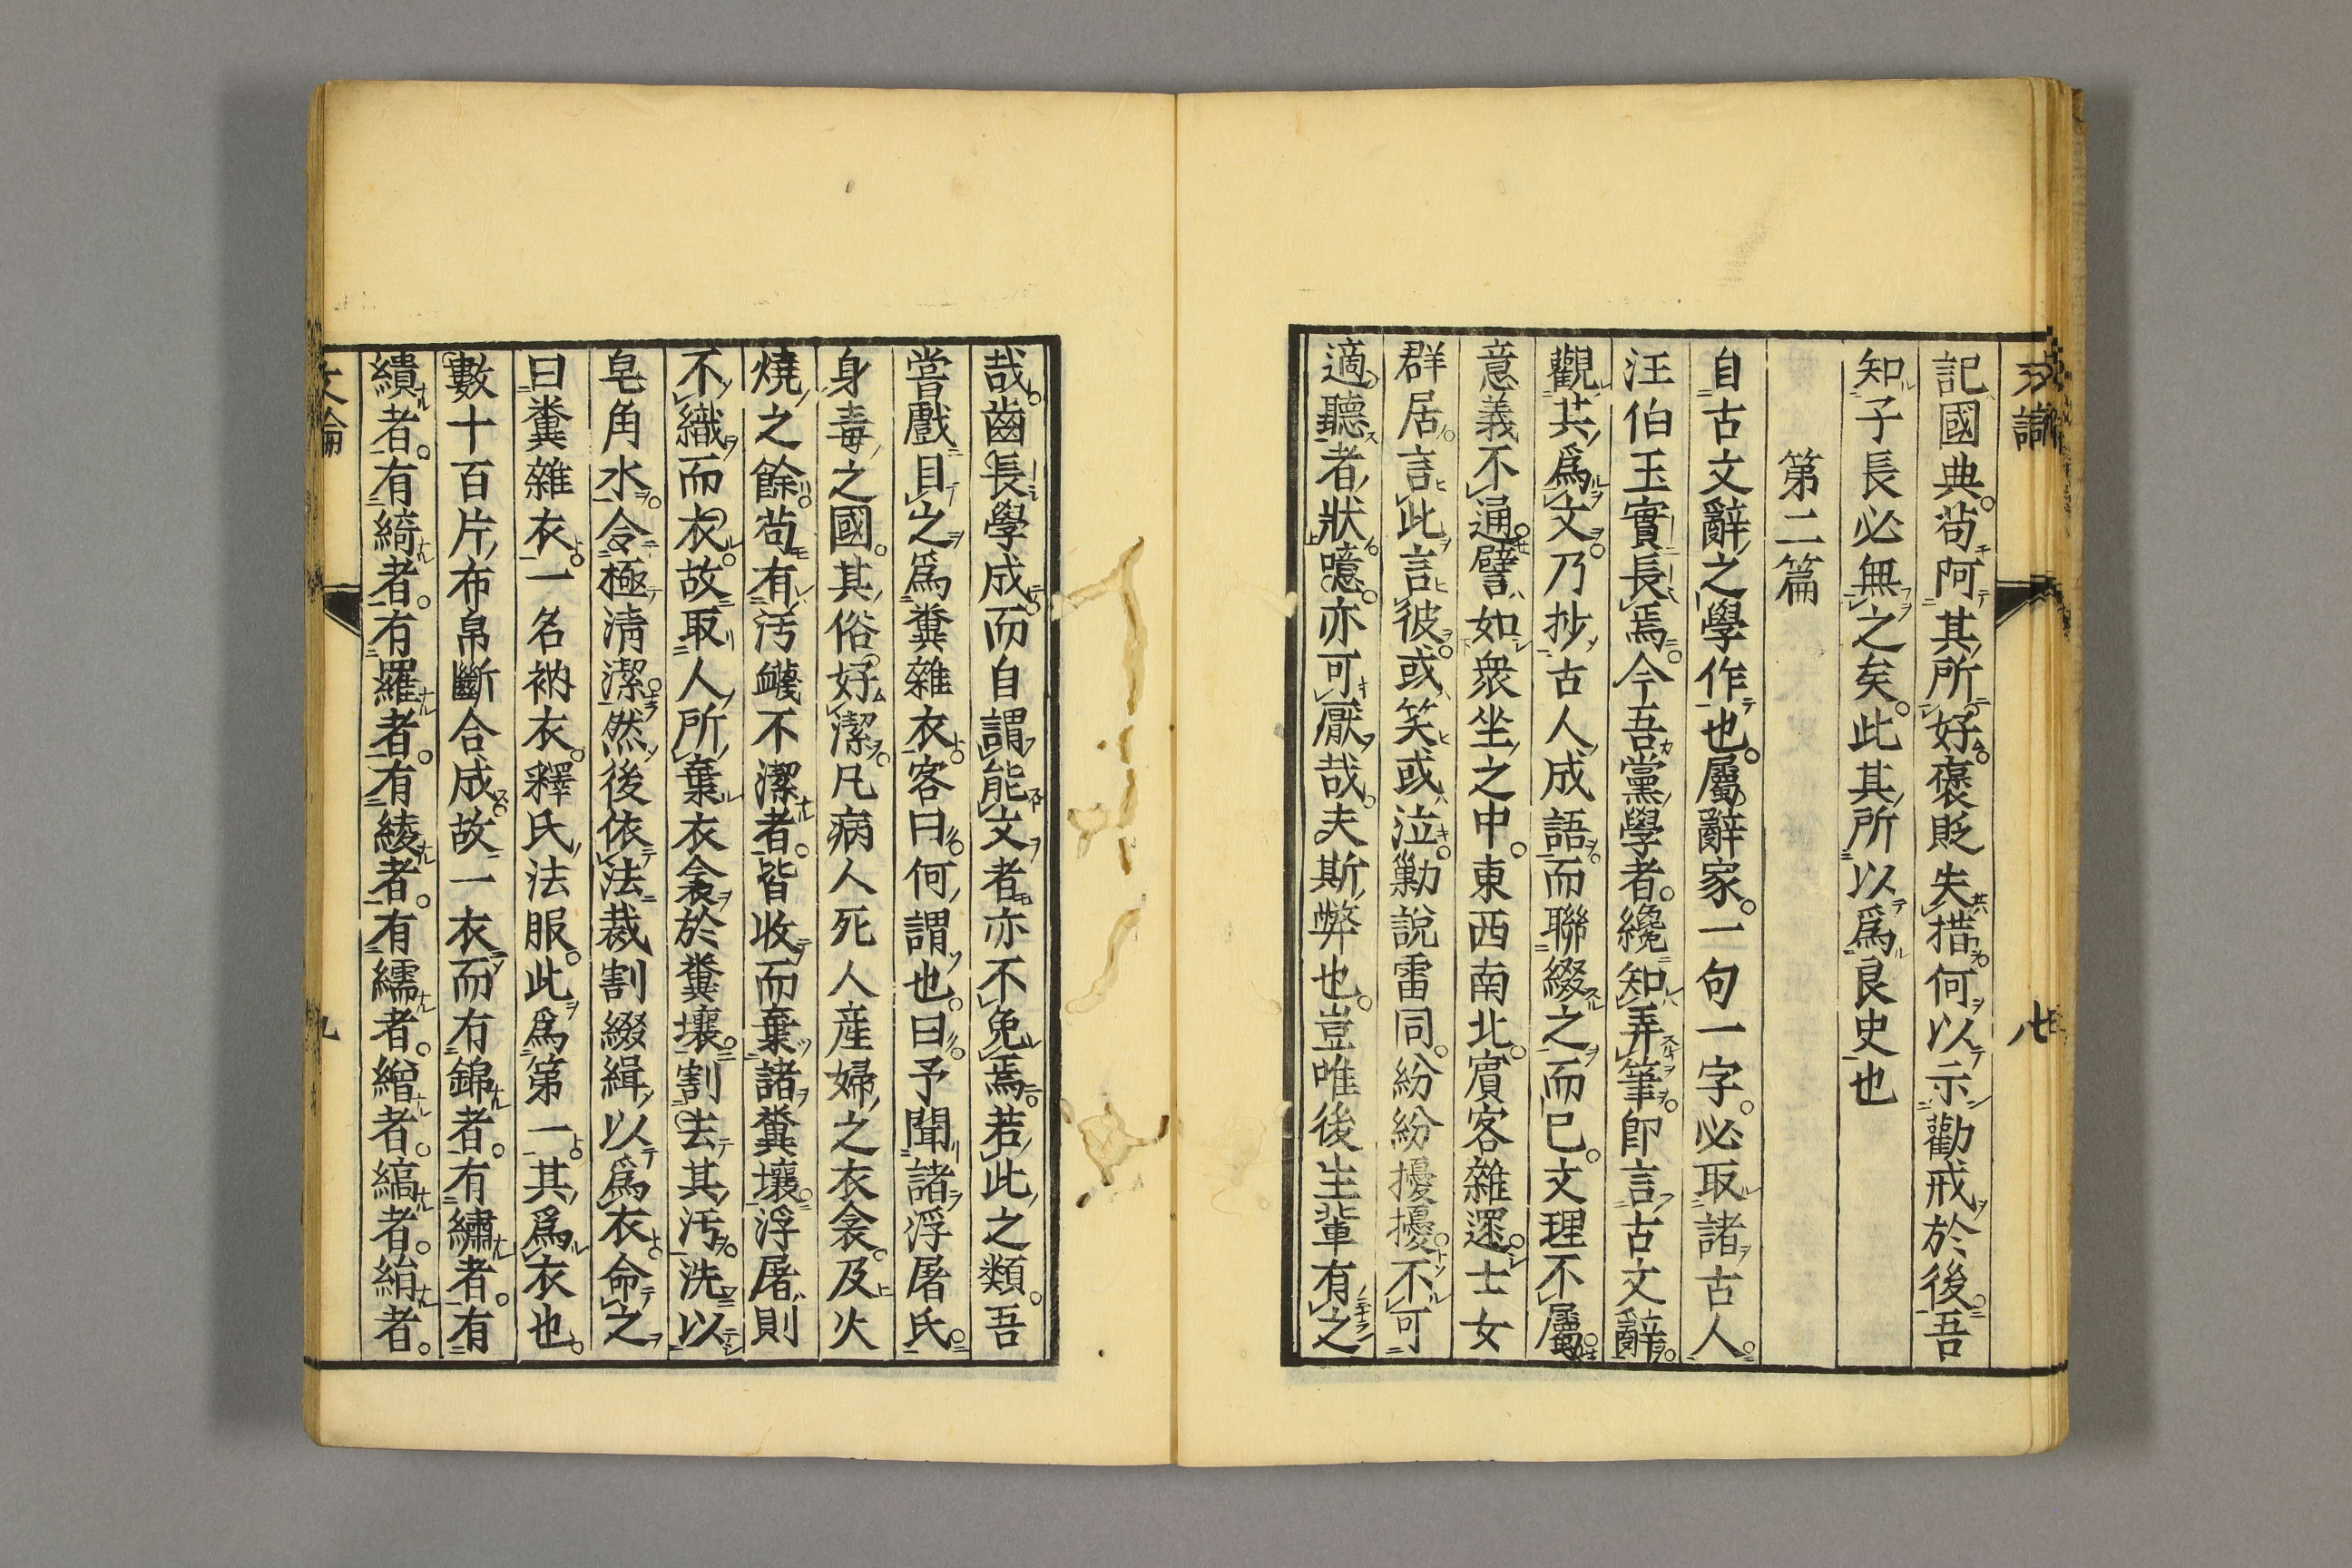 記國典。苟阿其所好。褒貶失措。何以示勸戒於後。吾
知子長必無之矣。此其所以爲良史也
第二篇
自古文辭之學作也。屬辭家。一句一字。必取諸古人。
汪伯玉實長焉。今吾黨學者。纔知弄筆。即言古文辭。
觀其爲文。乃抄古人成語。而聯綴之而已。文理不屬。
意義不通。譬如衆坐之中。東西南北。賓客雜遝。士女
群居。言此言彼。或笑或泣。勦說雷同。紛紛擾擾。不可
適聽者狀。噫亦可厭哉。夫斯弊也。豈唯後生輩有之
哉。齒長學成。而自謂能文者。亦不免焉。若此之類。吾
嘗戲目之爲糞雜衣。客曰。何謂也。曰。予聞諸浮屠氏。
身毒之國。其俗好潔。凡病人死人産婦之衣衾。及火
燒之餘。苟有汚衊不潔者。皆收而棄諸糞壤。浮屠則
不織而衣。故取人所棄衣衾於糞壤。割去其汚。洗以
皂角水。令極淸潔。然後依法裁割綴緝以爲衣。命之
曰糞雜衣。一名衲衣。釋氏法服。此爲第一。其爲衣也。
數十百片布帛斷合成。故一衣而有錦者。有繡者。有
繢者。有綺者。有羅者。有綾者。有繻者。繒者。縞者。絹者。
文論
九